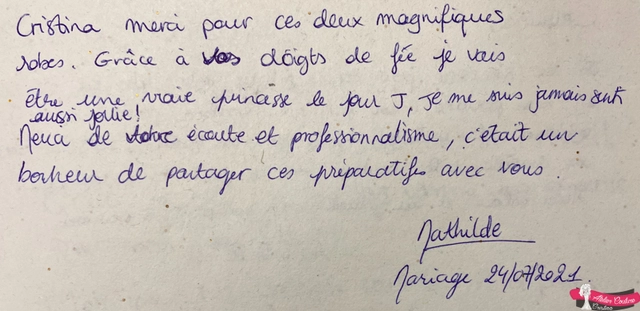 Cristina merci pour ces deux magnifiques
robes. Grâce à vos doigts de fée je vais
être une vraie princesse le jour J, Je me suis jamais senti
aussi jolie!
Merci de votre écoute et professionnalisme, c'était un
bonheur de partager ces préparatifs avec vous.
Mathilde
Mariage 24/07/2021.
Atelier Couture
Cristina